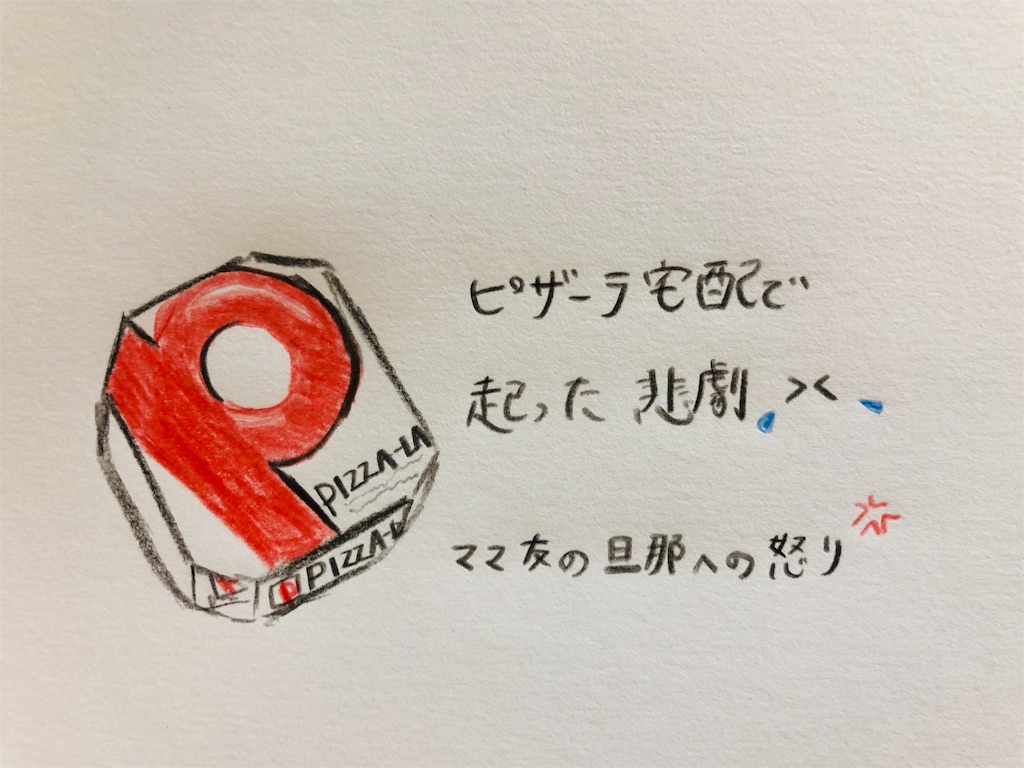 ピザーラ宅配で
起った悲劇 ><
ママ友の旦那への怒り
PIZZA-LA
PIZZA-L